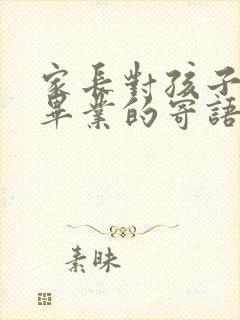 家長對孩子
畢業的寄語
素昧